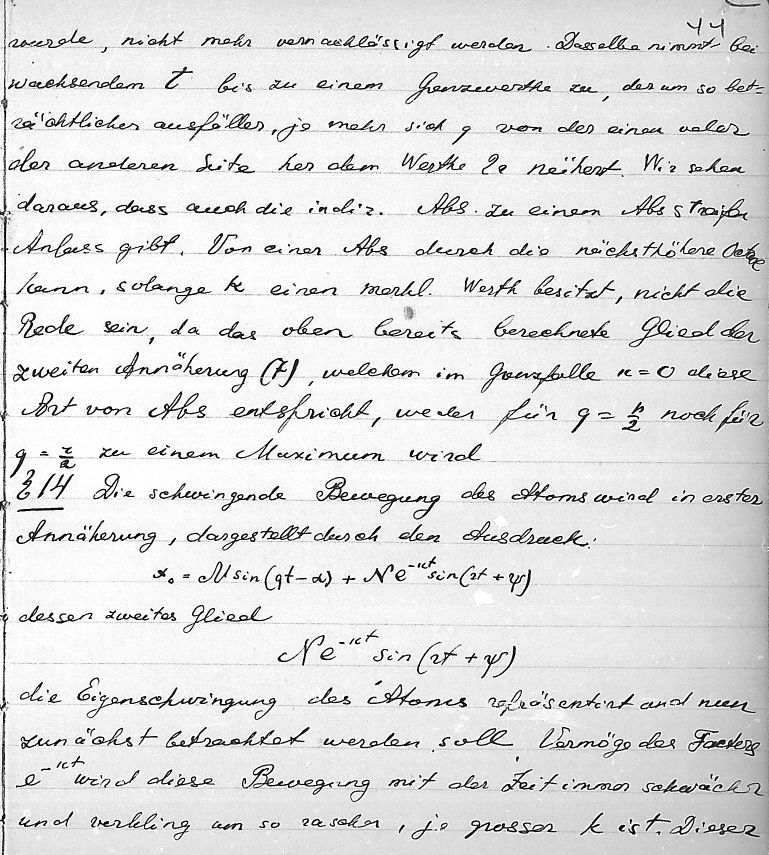 44
wurde, nicht mehr vernachlässigt werden. Dasselbe nimmt bei
wachsendem t bis zu einem Grenzwerthe zu, der um so bet=
rächtlicher ausfällt, je mehr sich q von der einen oder
der anderen Seite her dem Werthe 2r nähert. Wir sehen
daraus, dass auch die indir. Abs. zu einem Absstreifen
Anlass gibt. Von einer Abs durch die nächsthöhere Octave
kann, solange k einen merkl. Werth besitzt, nicht die
Rede sein, da das oben bereits berechnete Glied der
zweiten Annäherung (7), welchem im Grenzfalle κ = 0 diese
Art von Abs entspricht, weder für q = n/2 noch für
q = r/2 zu einem Maximum wird
§ 14 Die schwingende Bewegung des Atoms wird in erster
Annäherung, dargestellt durch den Ausdruck:
x₀ = M sin(qt-α) + N e^-κt sin(rt + ψ)
dessen zweites Glied
N e^-κt sin(rt + ψ)
die Eigenschwingung des Atoms repräsentirt und nun
zunächst betrachtet werden soll. Vermöge des Factors
e^-κt wird diese Bewegung mit der Zeit immer schwächer
und verkling um so rascher, je grosser k ist. Dieser